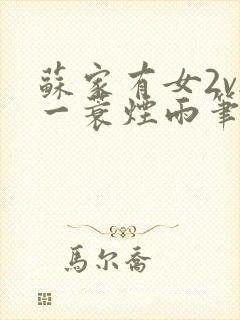 蘇家有女2v
一蓑煙雨筆
馬尔喬